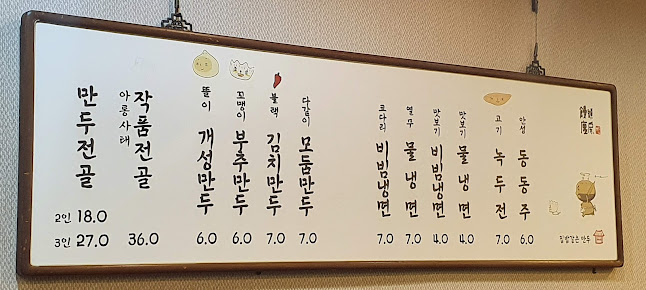 만두전골
2인 18.0
3인 27.0
아롱사태
작품전골
36.0
똘이
개성만두
6.0
꼬맹이
부추만두
6.0
불랙
김치만두
7.0
다같이
모둠만두
7.0
코다리
비빔냉면
7.0
열무
물냉면
7.0
맛보기
비빔냉면
4.0
맛보기
물냉면
4.0
고기
녹두전
7.0
안성
동동주
6.0
집밥같은 만두